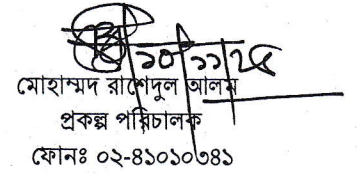 ১০/১১/২৫
মোহাম্মদ রাশেদুল আলম
প্রকল্প পরিচালক
ফোনঃ ০২-৪১০১০৩৪১